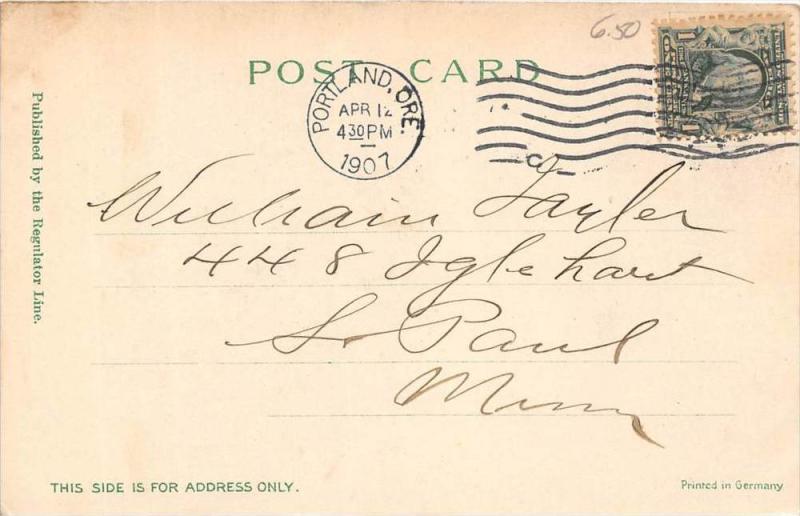 6.50
POST CARD
PORTLAND, ORE.
APR 12
430 PM
1907
C
1 1
Published by the Regulator Line.
William Tayler
448 Iglehart
St Paul
Minn
THIS SIDE IS FOR ADDRESS ONLY.
Printed in Germany